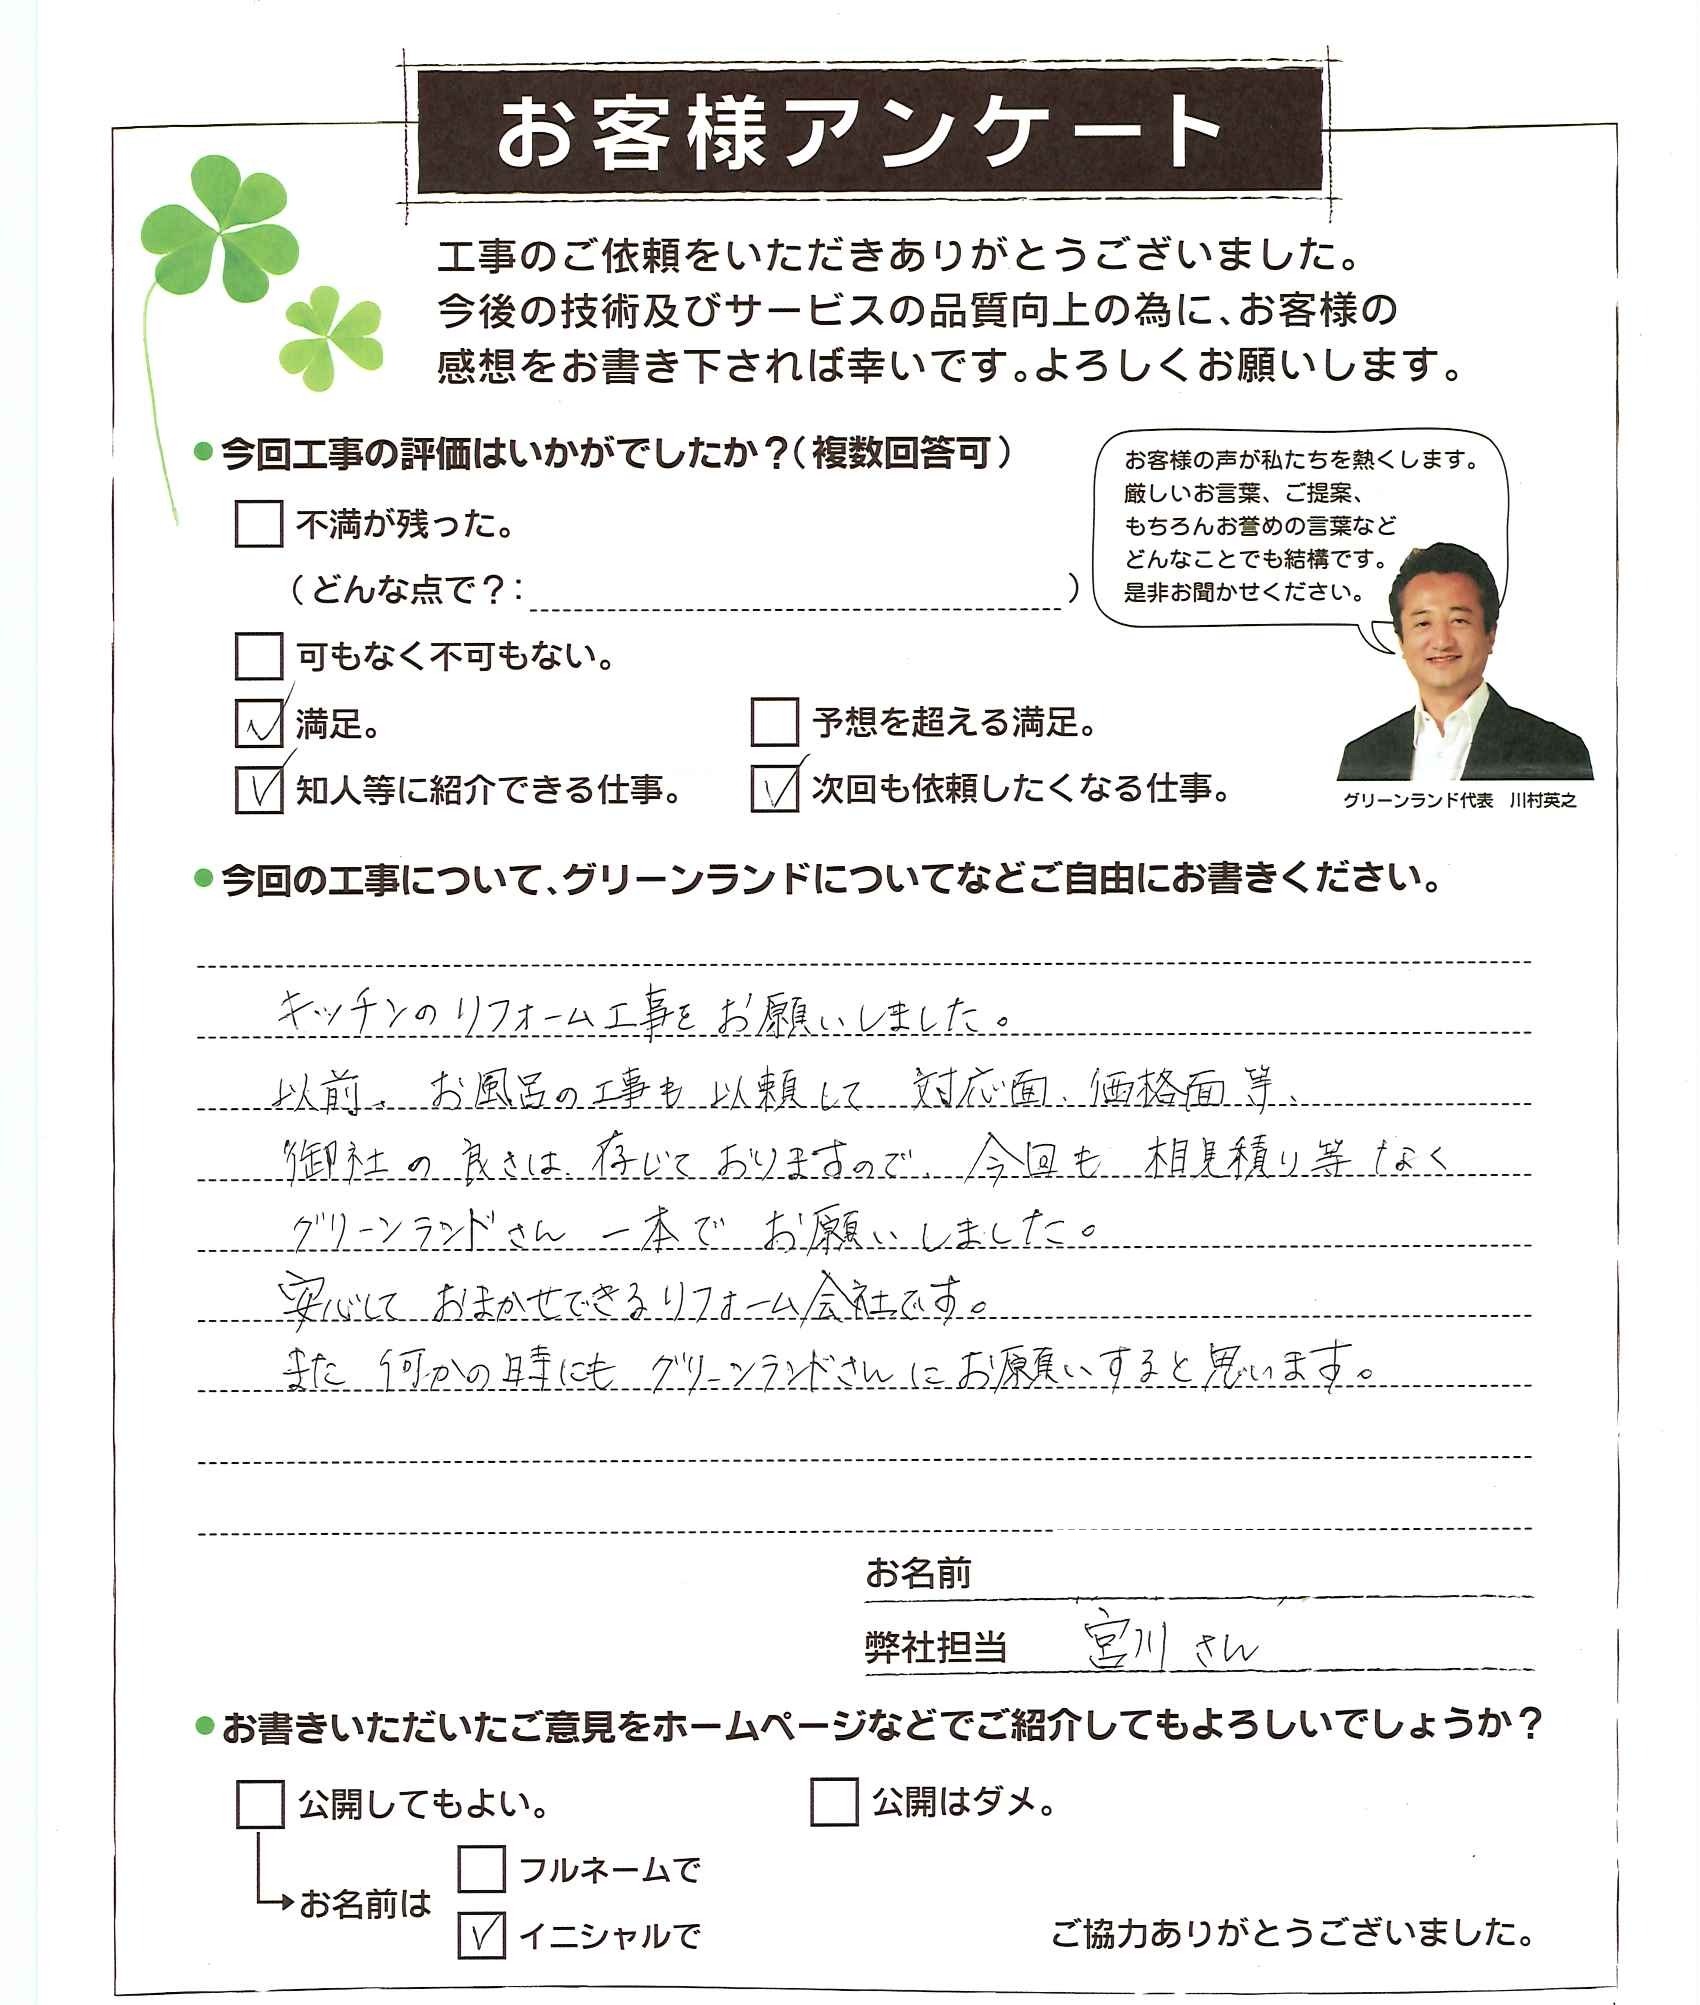 お客様アンケート
工事のご依頼をいただきありがとうございました。
今後の技術及びサービスの品質向上の為に、お客様の
感想をお書き下されば幸いです。よろしくお願いします。
●今回工事の評価はいかがでしたか？（複数回答可）
お客様の声が私たちを熱くします。
厳しいお言葉、ご提案、
もちろんお誉めの言葉など
どんなことでも結構です。
是非お聞かせください。
不満が残った。
（どんな点で？：　）
可もなく不可もない。
満足。
予想を超える満足。
知人等に紹介できる仕事。
次回も依頼したくなる仕事。
グリーンランド代表　川村英之
●今回の工事について、グリーンランドについてなどご自由にお書きください。
キッチンのリフォーム工事をお願いしました。
以前、お風呂の工事も以頼して 対応面、価格面等、
御社の良さは、存じておりますので、今回も 相見積り等なく
グリーンランドさん 一本で お願いしました。
安心して おまかせできるリフォーム会社です。
また 何かの時にも グリーンランドさんに お願いすると思います。
お名前
弊社担当　宮川さん
●お書きいただいたご意見をホームページなどでご紹介してもよろしいでしょうか？
公開してもよい。
公開はダメ。
お名前は
フルネームで
イニシャルで
ご協力ありがとうございました。